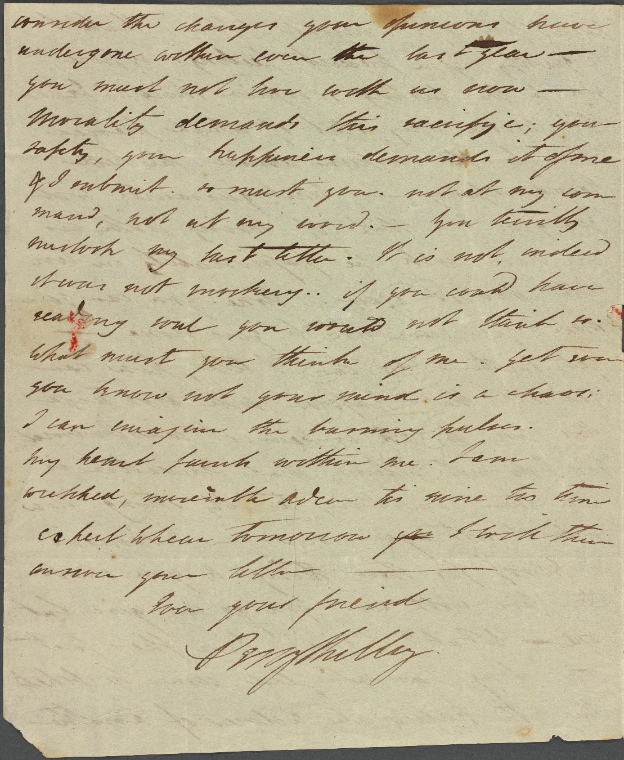 consider the changes your opinions have
undergone within even the last year —
you must not live with us now —
Morality demands this sacrifice; your
safety, your happiness demands it of me
& I submit. so must you. not at my com
mand, not at my word. — You terribly
mistook my last letter. It is not, indeed
it was not mockery.. if you could have
read my soul you would not think so.
What must you think of me. Yet
you know not your mind is a chaos;
I can imagine the burning pulses.
My heart faints within me. I am
wretched, miserable adieu tis nine tis time
tomorrow I will then
answer your letter
Ever your friend
Percy Shelley.